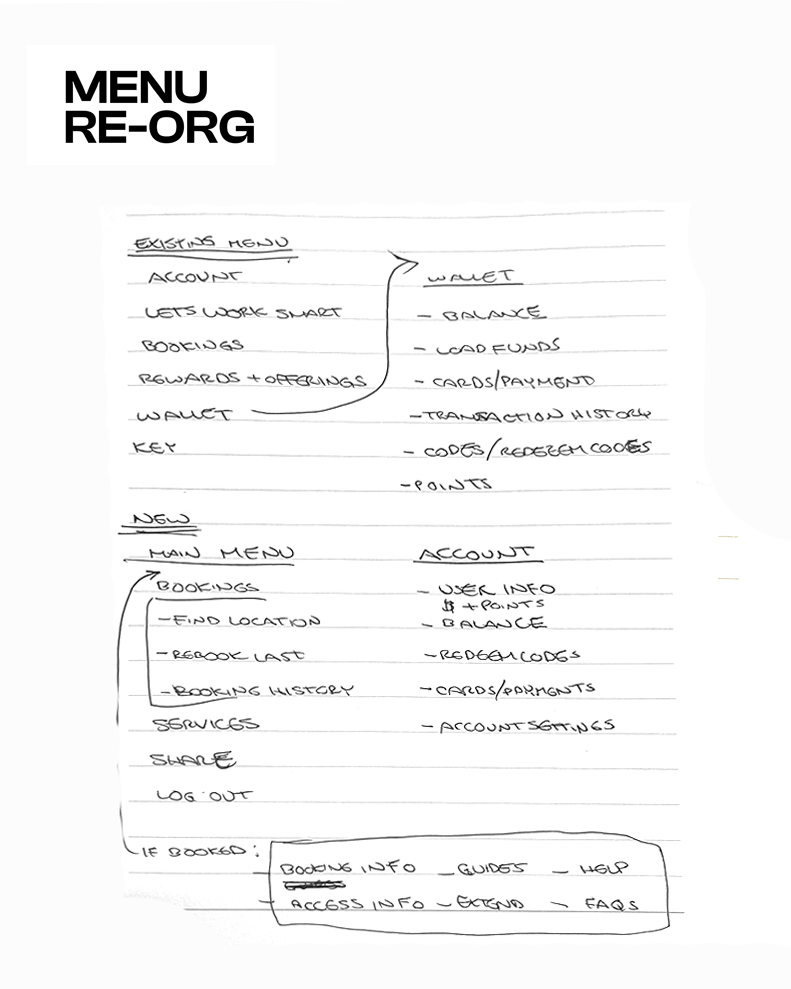 MENU
RE-ORG
EXISTING MENU
ACCOUNT
LETS WORK SMART
BOOKINGS
REWARDS + OFFERINGS
WALLET
KEY
WALLET
- BALANCE
- LOAD FUNDS
- CARDS/PAYMENT
- TRANSACTION HISTORY
- CODES/REDEEM CODES
- POINTS
NEW
MAIN MENU
BOOKINGS
- FIND LOCATION
- REBOOK LAST
- BOOKING HISTORY
SERVICES
SHARE
LOG OUT
ACCOUNT
- USER INFO
$ + POINTS
- BALANCE
- REDEEM CODES
- CARDS/PAYMENTS
- ACCOUNT SETTINGS
IF BOOKED:
- BOOKING INFO - GUIDES - HELP
- ACCESS INFO - EXTEND - FAQS